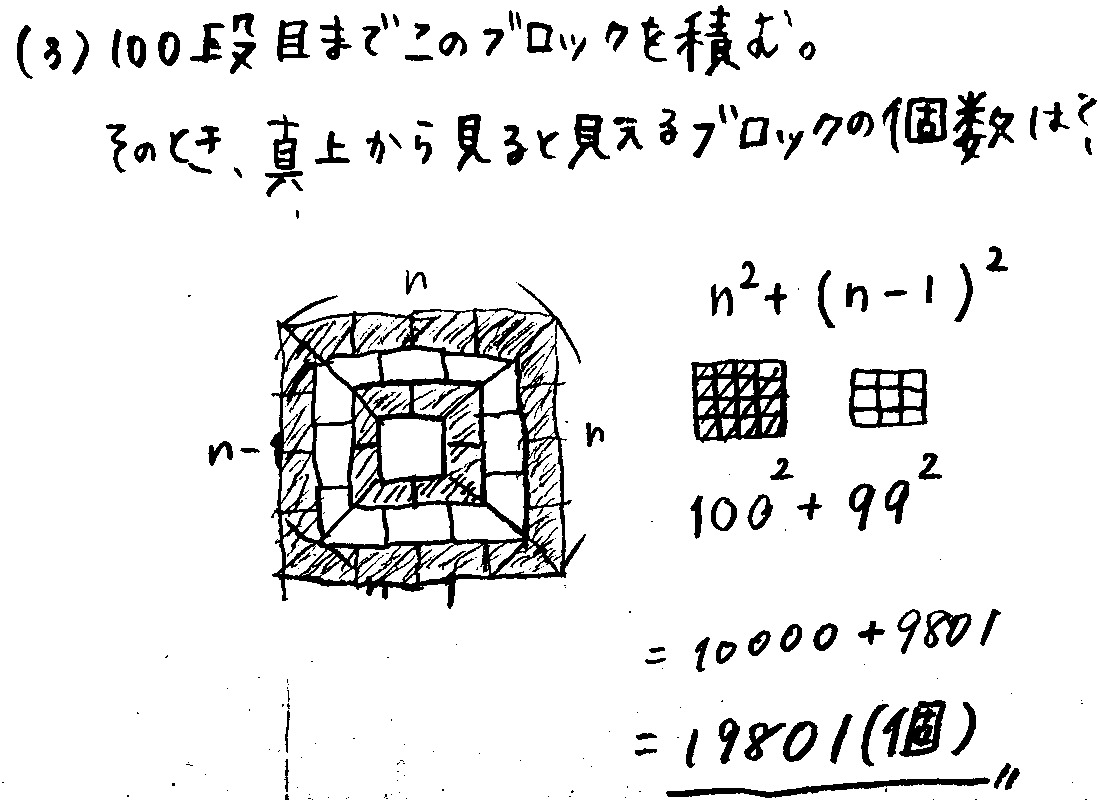 (3) 100段目までこのブロックを積む。
そのとき、真上から見ると見えるブロックの個数は?
n
n² + (n - 1)²
n - 1
n
100² + 99²
n - 1
= 10000 + 9801
= 19801(個)